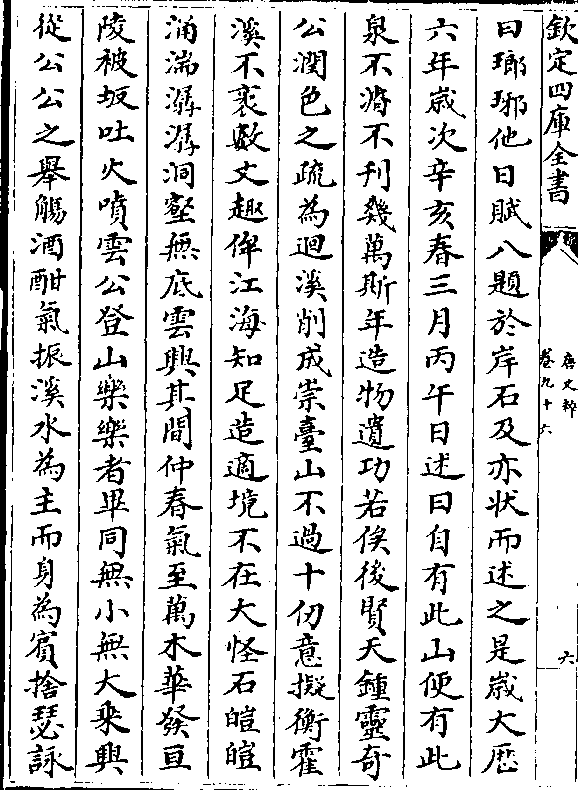 欽定四庫全書
唐文粹
卷九十六
六
曰瑯琊他日賦八題於岸石及亦状而述之是歳大厯
六年歳次辛亥春三月丙午日述曰自有此山便有此
泉不濬不刊幾萬斯年造物遺功若俟後賢天鍾靈奇
公潤色之疏為迴溪削成崇臺山不過十仞意擬衡霍
溪不袤數丈趣侔江海知足造適境不在大怪石皚皚
涌湍潺潺洞壑無底雲興其間仲春氣至萬木華發亘
陵被坂吐火噴雲公登山樂樂者畢同無小無大乘興
從公公之舉觴酒酣氣振溪水為主而身為賓捨瑟詠